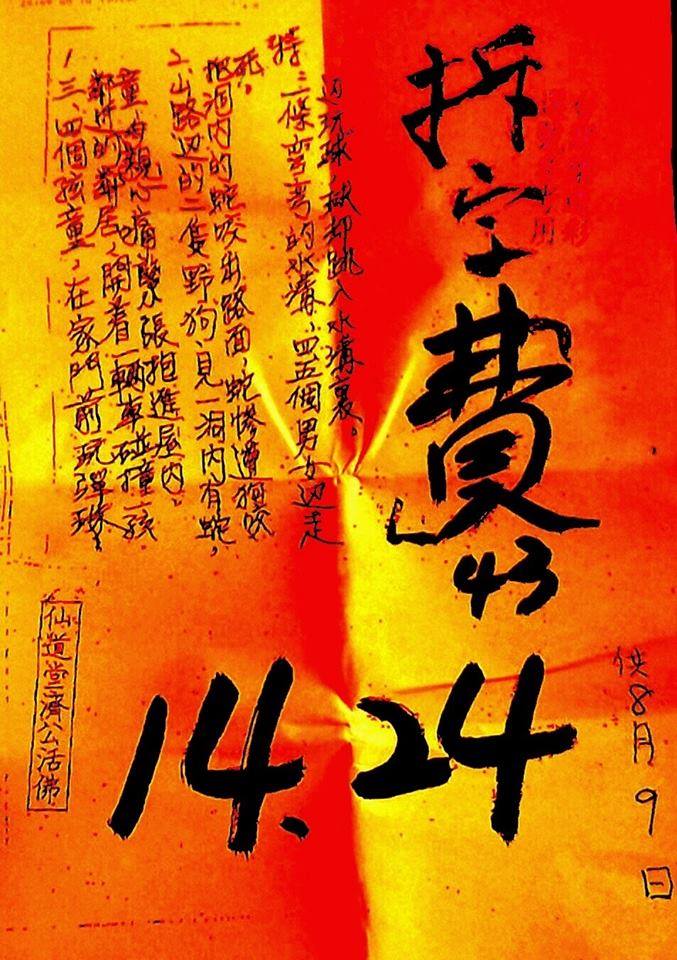 拆字費43
14.24
供8月9日
1 三、四個孩童,在家門前玩彈珠,
鄰近的鄰居,開着一輛車碰撞一孩
童母親心痛緊張抱進屋内.
2 山路边的二隻野狗,見一洞内有蛇,
把洞内的蛇咬出路面,蛇慘遭狗咬
死.
特:二條弯弯的水溝,四五個男女边走
边玩球,球却跳入水溝裏。
仙道堂济公活佛